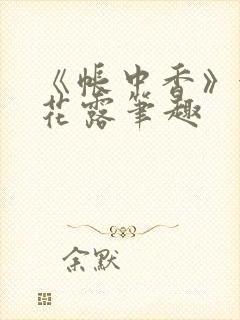 《帐中香》
花露笔趣
余默